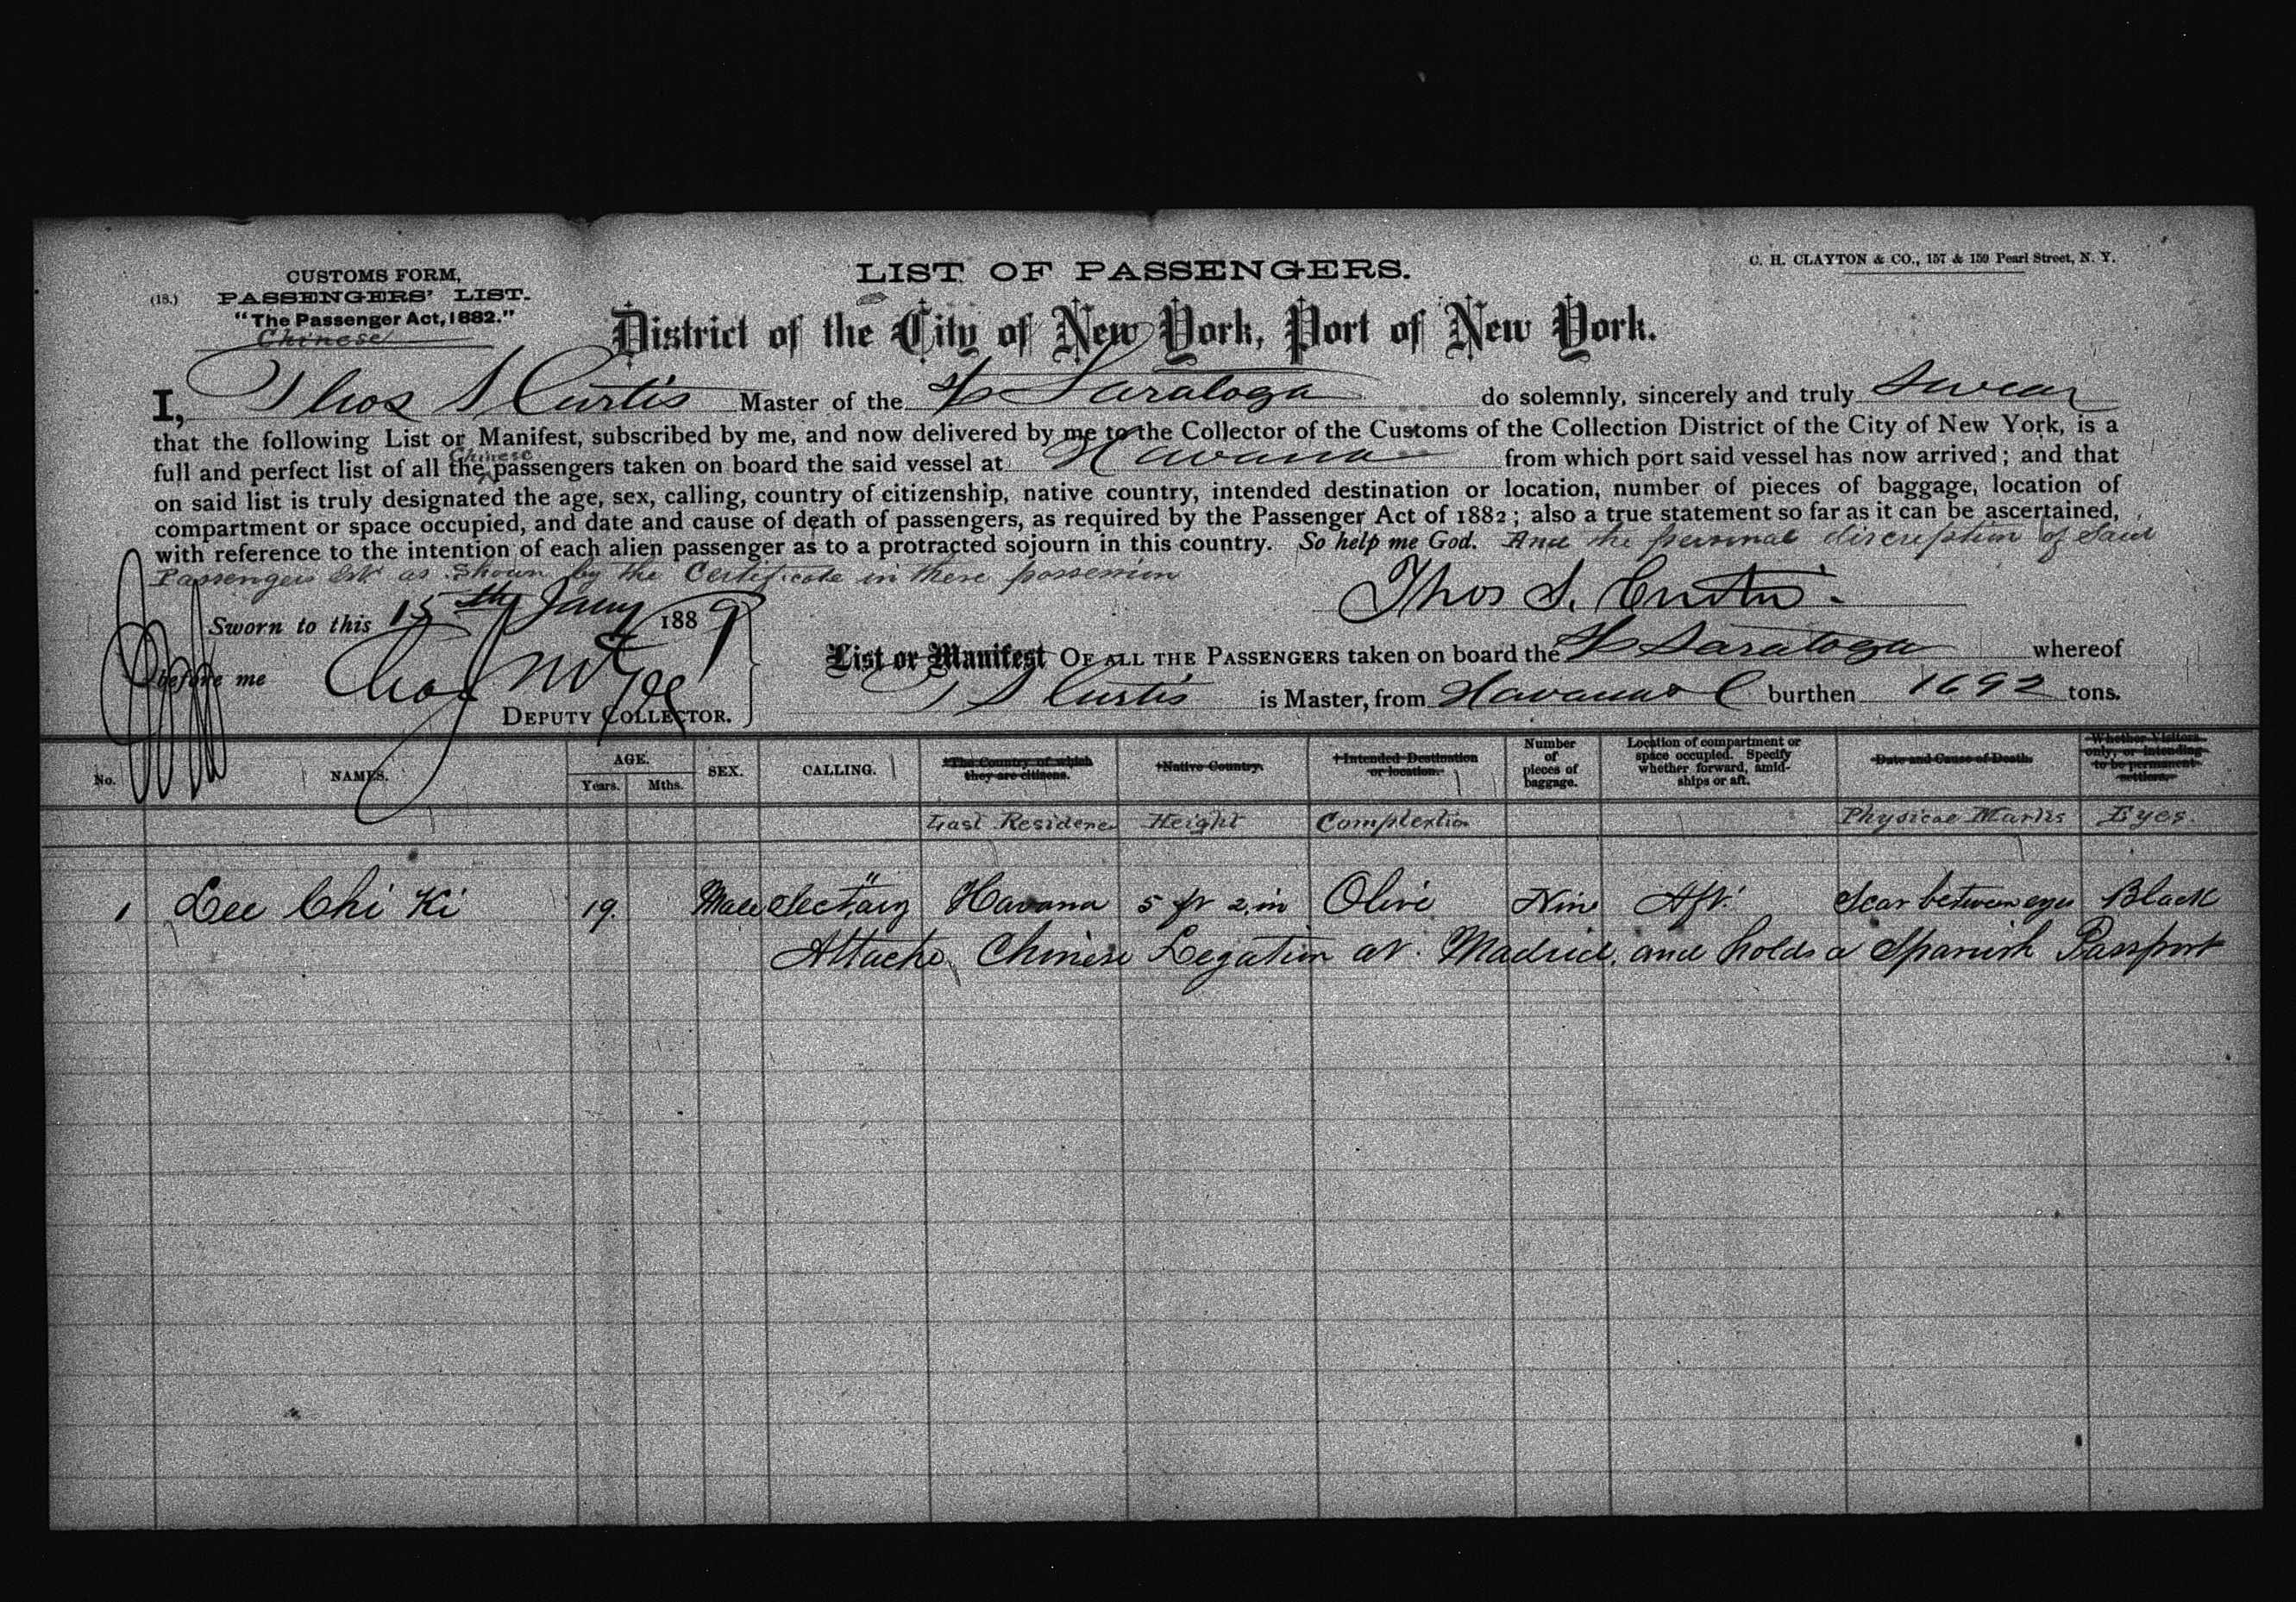 LIST OF PASSENGERS.
C. H. CLAYTON & CO., 157 & 159 Pearl Street, N. Y.
(18.)
CUSTOMS FORM,
PASSENGERS' LIST.
"The Passenger Act, 1882."
Chinese
District of the City of New York, Port of New York.
I, Thos S Curtis Master of the Saratoga do solemnly, sincerely and truly swear
that the following List or Manifest, subscribed by me, and now delivered by me to the Collector of the Customs of the Collection District of the City of New York, is a
full and perfect list of all the Chinese passengers taken on board the said vessel at Havana from which port said vessel has now arrived; and that
on said list is truly designated the age, sex, calling, country of citizenship, native country, intended destination or location, number of pieces of baggage, location of
compartment or space occupied, and date and cause of death of passengers, as required by the Passenger Act of 1882; also a true statement so far as it can be ascertained,
with reference to the intention of each alien passenger as to a protracted sojourn in this country. So help me God. And the personal discreption of Said
Passengers as Shown by the Certificate in there possession
Thos S. Curtis.
Sworn to this 15th Jany 1889
before me
DEPUTY COLLECTOR.
List or Manifest OF ALL THE PASSENGERS taken on board the Saratoga whereof
T S Curtis is Master, from Havana burthen 1692 tons.
No. NAMES. AGE. Years. Mths. SEX. CALLING. *The Country of which they are citizens. †Native Country. †Intended Destination or location. Number of pieces of baggage. Location of compartment or space occupied. Specify whether forward, amidships or aft. Date and Cause of Death. Whether Visitors only, or intending to be permanent settlers.
Last Residence Height Complextion Physical Marks Eyes.
1 Lee Chi Ki 19. Male Sect'ary Havana 5 ft 2 in Olive Nine Aft. Scar between eyes Black
Attache Chinese Legation at Madrid, and holds a Spanish Passport